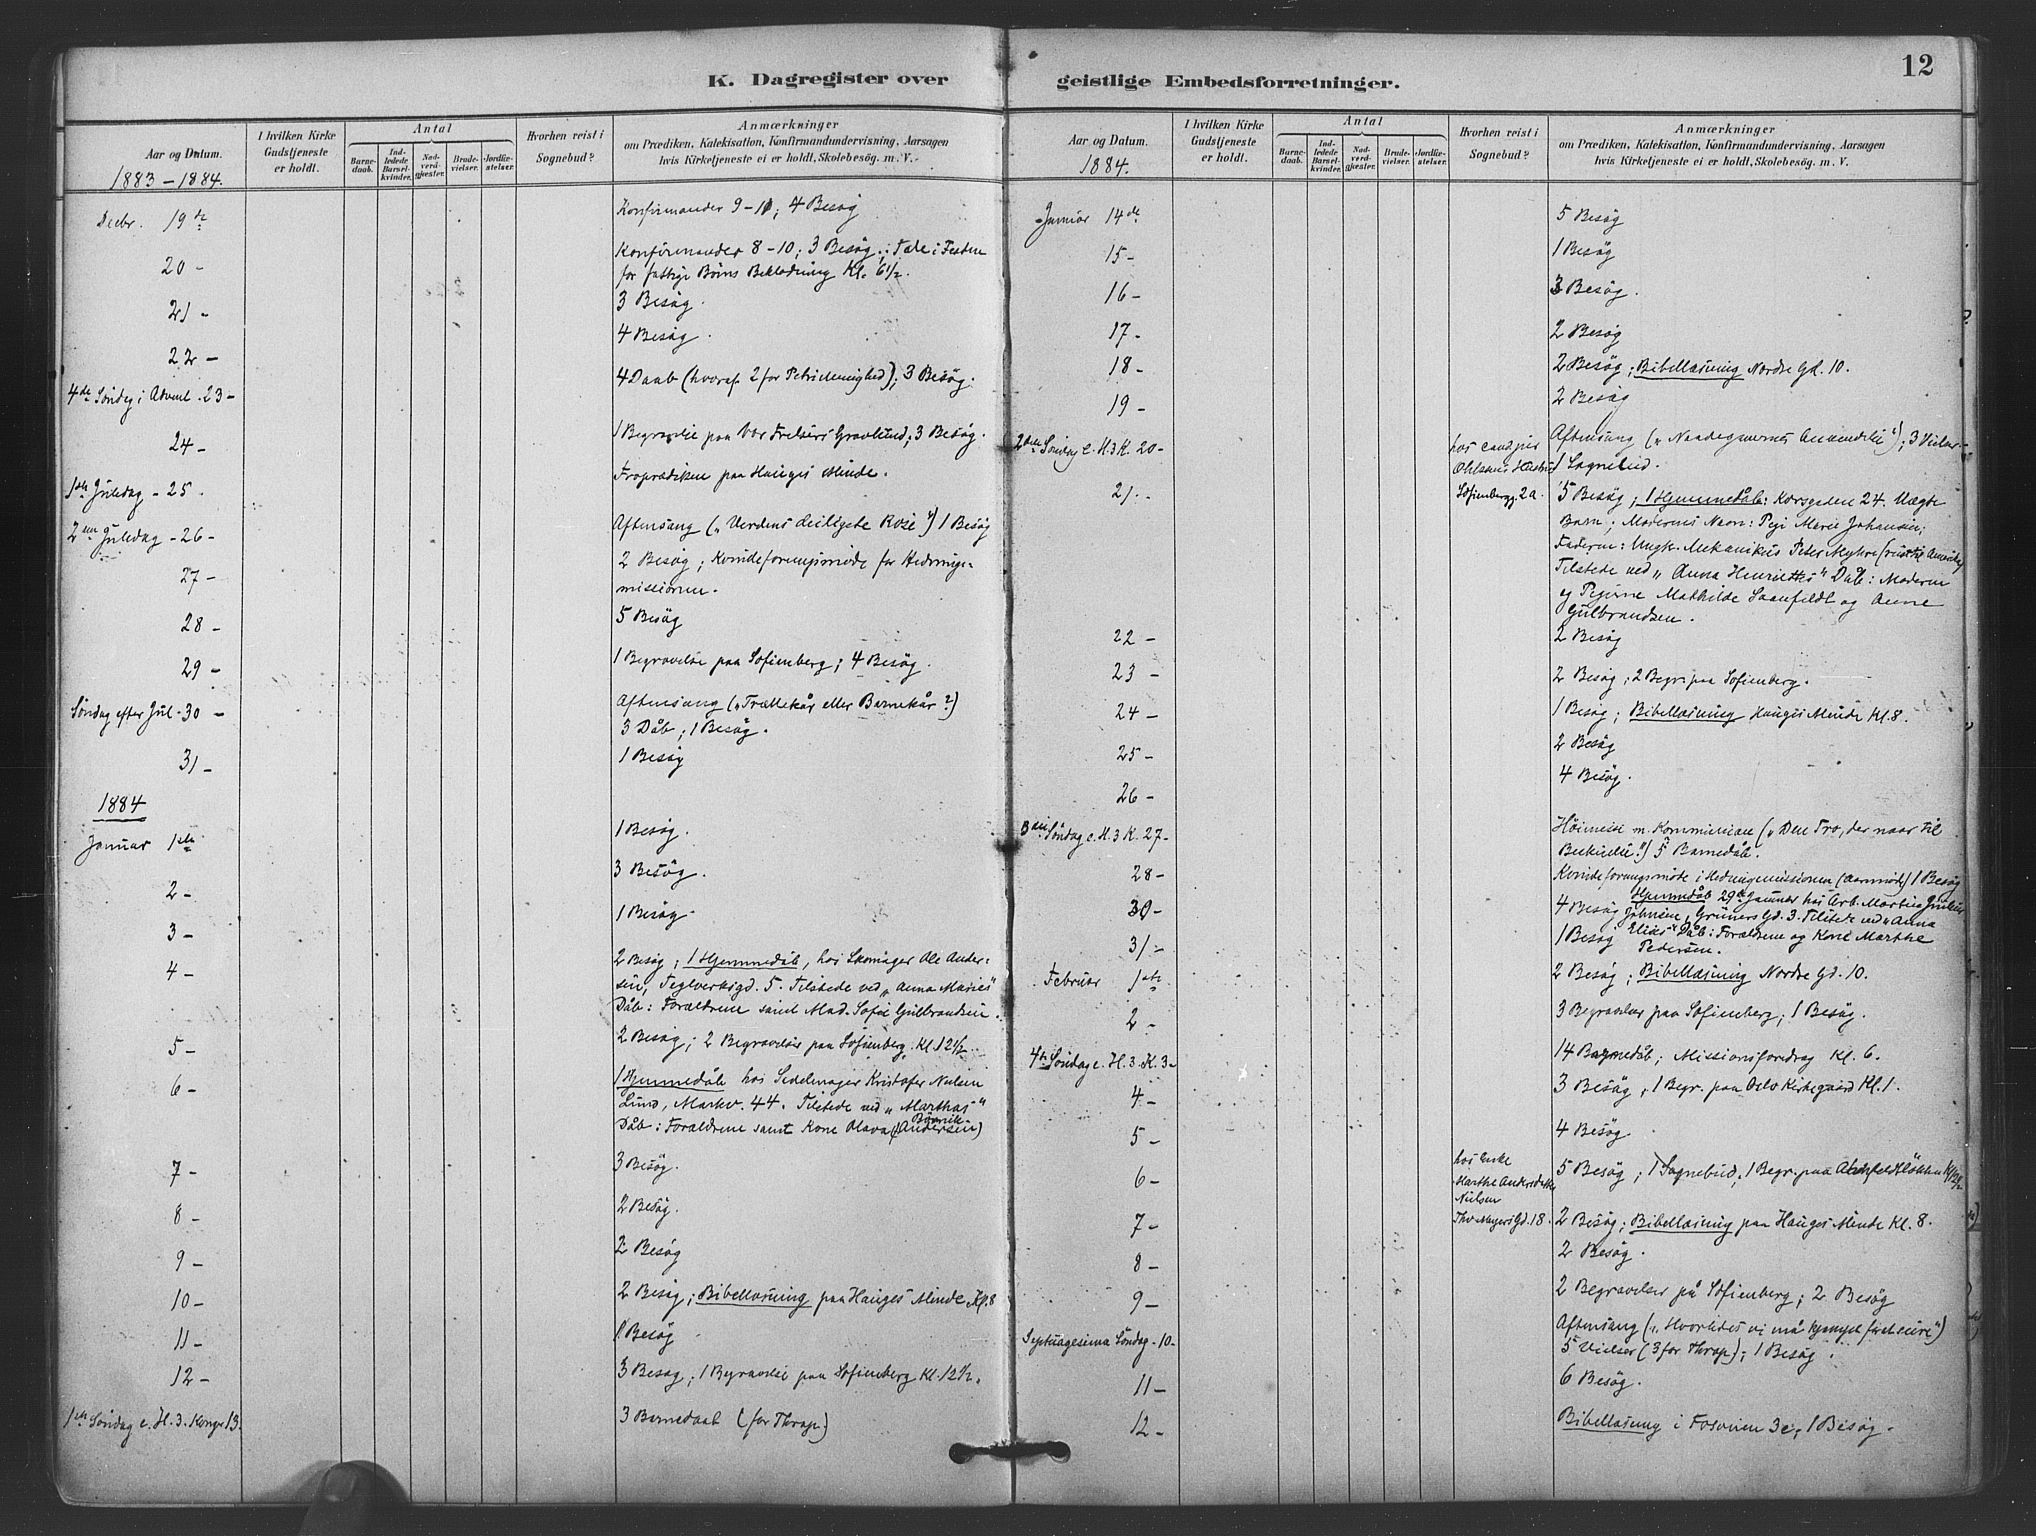 K. Dagregister over
Aar og Datum.
1883–1884.
I hvilken Kirke Gudstjeneste er holdt.
Antal
Barnedaab.
Indledede Barselkvinder.
Nadverdgjæster.
Brudevielser.
Jordfæstelser.
Hvorhen reist i Sognebud?
Anmærkninger
om Prædiken, Katekisation, Konfirmandundervisning, Aarsagen
hvis Kirketjeneste ei er holdt, Skolebesøg. m. V.
Decbr. 19de Konfirmander 9–11; 4 Besøg
20 – Konfirmander 8–10; 3 Besøg; Tale i Festen
for fattige Børns Beklædning Kl. 6 1/2.
21 – 3 Besøg.
22 – 4 Besøg.
4de Søndag i Advent. 23 – 4 Daab (hvoraf 2 for Petri Menighed); 3 Besøg.
24 – 1 Begravelse paa Vor Frelsers Gravlund; 3 Besøg.
1ste Juledag – 25. Froprædiken paa Hauges Minde.
2den Juledag – 26 – Aftensang („Verdens deiligste Rose") 1 Besøg
27 – 2 Besøg; Kvindeforeningsmøde for Hednings-
missionen.
28 – 5 Besøg
29 – 1 Begravelse paa Sofienberg; 4 Besøg.
Søndag efter Jul – 30 – Aftensang („Trællekår eller Barnekår?)
3 Dåb; 1 Besøg.
31 – 1 Besøg
1884
Januar 1ste 1 Besøg.
2 – 3 Besøg.
3 – 1 Besøg.
4 – 2 Besøg; 1 Hjemmedåb, hos Skomager Ole Ander-
sen, Teglverksgd. 5. Tilstede ved „Anna Maries"
Dåb: Forældrene samt Mad. Sofie Gulbrandsen.
5 – 2 Besøg; 2 Begravelser paa Sofienberg Kl. 12 1/2.
6 – 1 Hjemmedåb hos Sedelmager Kristofer Nielsen
Lund, Markv. 44. Tilstede ved „Marthas"
Dåb: Forældrene samt Kone Olava (Andersen)
7 – 3 Besøg.
8 – 2 Besøg.
9 – 2 Besøg
10 – 2 Besøg; Bibellæsning paa Hauges Minde Kl. 8
11 – 1 Besøg
12 – 3 Besøg; 1 Begravelse paa Sofienberg Kl. 12 1/2.
1ste Søndag e. H. 3. Konger 13. 3 Barnedaab (for Thrap.)
geistlige Embedsforretninger.
12
Aar og Datum.
1884.
I hvilken Kirke Gudstjeneste er holdt.
Antal
Barnedaab.
Indledede Barselkvinder.
Nadverdgjæster.
Brudevielser.
Jordfæstelser.
Hvorhen reist i Sognebud?
Anmærkninger
om Prædiken, Katekisation, Konfirmandundervisning, Aarsagen
hvis Kirketjeneste ei er holdt, Skolebesøg. m. V.
Januar 14de 5 Besøg
15 – 1 Besøg
16 – 3 Besøg.
17 – 2 Besøg
18 – 2 Besøg; Bibellæsning Nordre Gd. 10.
19 – 2 Besøg
2den Søndag e. H. 3 K. 20 – Aftensang („Naadegavernes Anvendelse"); 3 Vielser
hos
Sofienbergg. 2a. 1 Sognebud.
21. – 5 Besøg; 1 Hjemmedåb: Korsgaden 24. Uægte
Barn; Moderens Navn: Marie Johansen;
Faderen: Ungk. Mekanikus Peter Myhre (reist til Amerika)
Tilstede ved „Anna Henriettes" Dåb: Moderen
og Mathilde og Anne
Gulbrandsen.
22 – 2 Besøg
23 – 2 Besøg; 2 Begr. paa Sofienberg.
24 – 1 Besøg; Bibellæsning Hauges Minde Kl. 8.
25 – 2 Besøg
26 – 4 Besøg.
3die Søndag e. H. 3 K. 27 – Høimesse m. Kommunion („Den Tro, der naar til
5 Barnedåb.
28 – Kvindeforeningsmøde i Hedningemissionen (Aarsmøde) 1 Besøg
30 – 4 Besøg Hjemmedåb 29de Januar hos Arb. Martin
Johnsen, Grüners Gd. 3. Tilstede ved „Anna
31 – 1 Besøg Elises" Dåb: Forældrene og Kone Marthe
Pedersen.
Februar 1ste 2 Besøg; Bibellæsning Nordre Gd. 10.
2 – 3 Begravelser paa Sofienberg; 1 Besøg.
4de Søndag e. H. 3. K. 3 – 14 Barnedåb; Missionsforedrag Kl. 6.
4 – 3 Besøg, 1 Begr. paa Oslo Kirkegaard Kl. 1.
5 – 4 Besøg
6 – hos Enke
Marthe
Nielsen
Thv. Meyers Gd. 18. 5 Besøg; 1 Sognebud, 1 Begr. paa
7 – 2 Besøg; Bibellæsning paa Hauges Minde Kl. 8.
8 – 2 Besøg.
9 – 2 Begravelser på Sofienberg; 2 Besøg
Septuagesima Søndag – 10 – Aftensang („Hvorledes vi må
5 Vielser (3 for Thrap); 1 Besøg.
11 – 6 Besøg.
12 – Bibellæsning i Fosveien 3c; 1 Besøg.